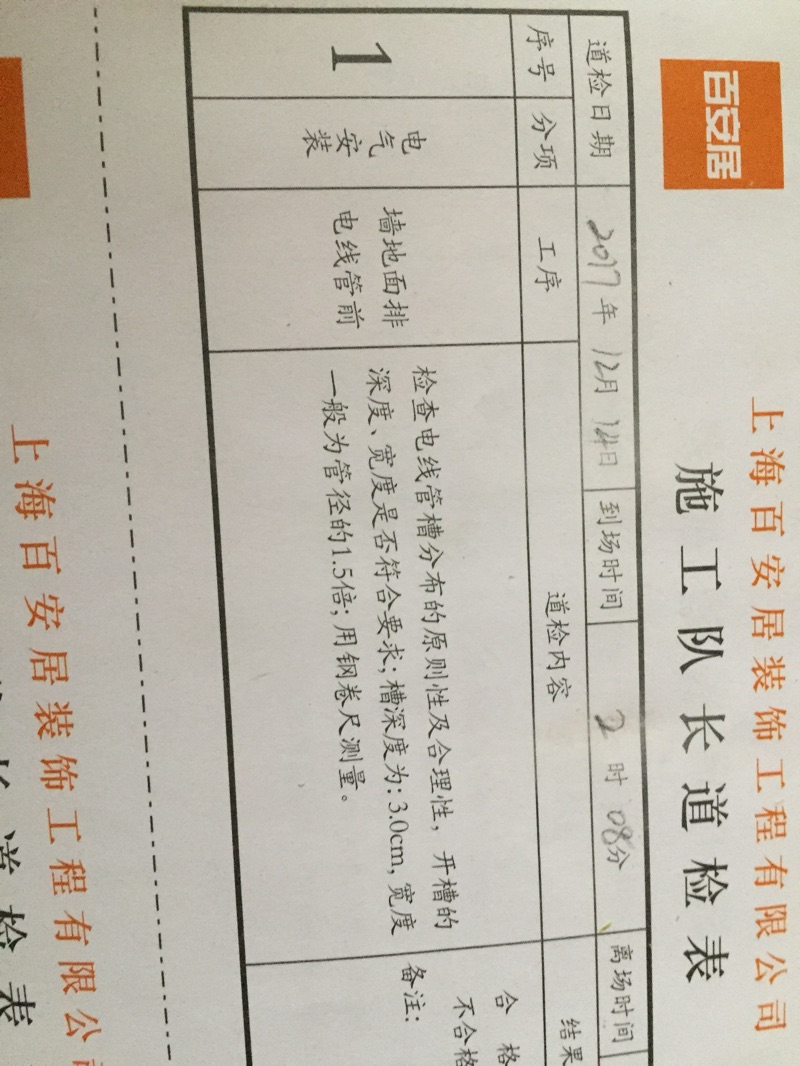 百安居
上海百安居装饰工程有限公司
施工队长道检表
道检日期 2017年12月14日 到场时间 2时08分 离场时间
序号 分项 工序 道检内容 结果
1 电气安装 墙地面排电线管前
检查电线管槽分布的原则性及合理性，开槽的
深度、宽度是否符合要求；槽深度为：3.0cm，宽度
一般为管径的1.5倍；用钢卷尺测量。
合格
不合格
备注：
上海百安居装饰工程有限公
长道检表